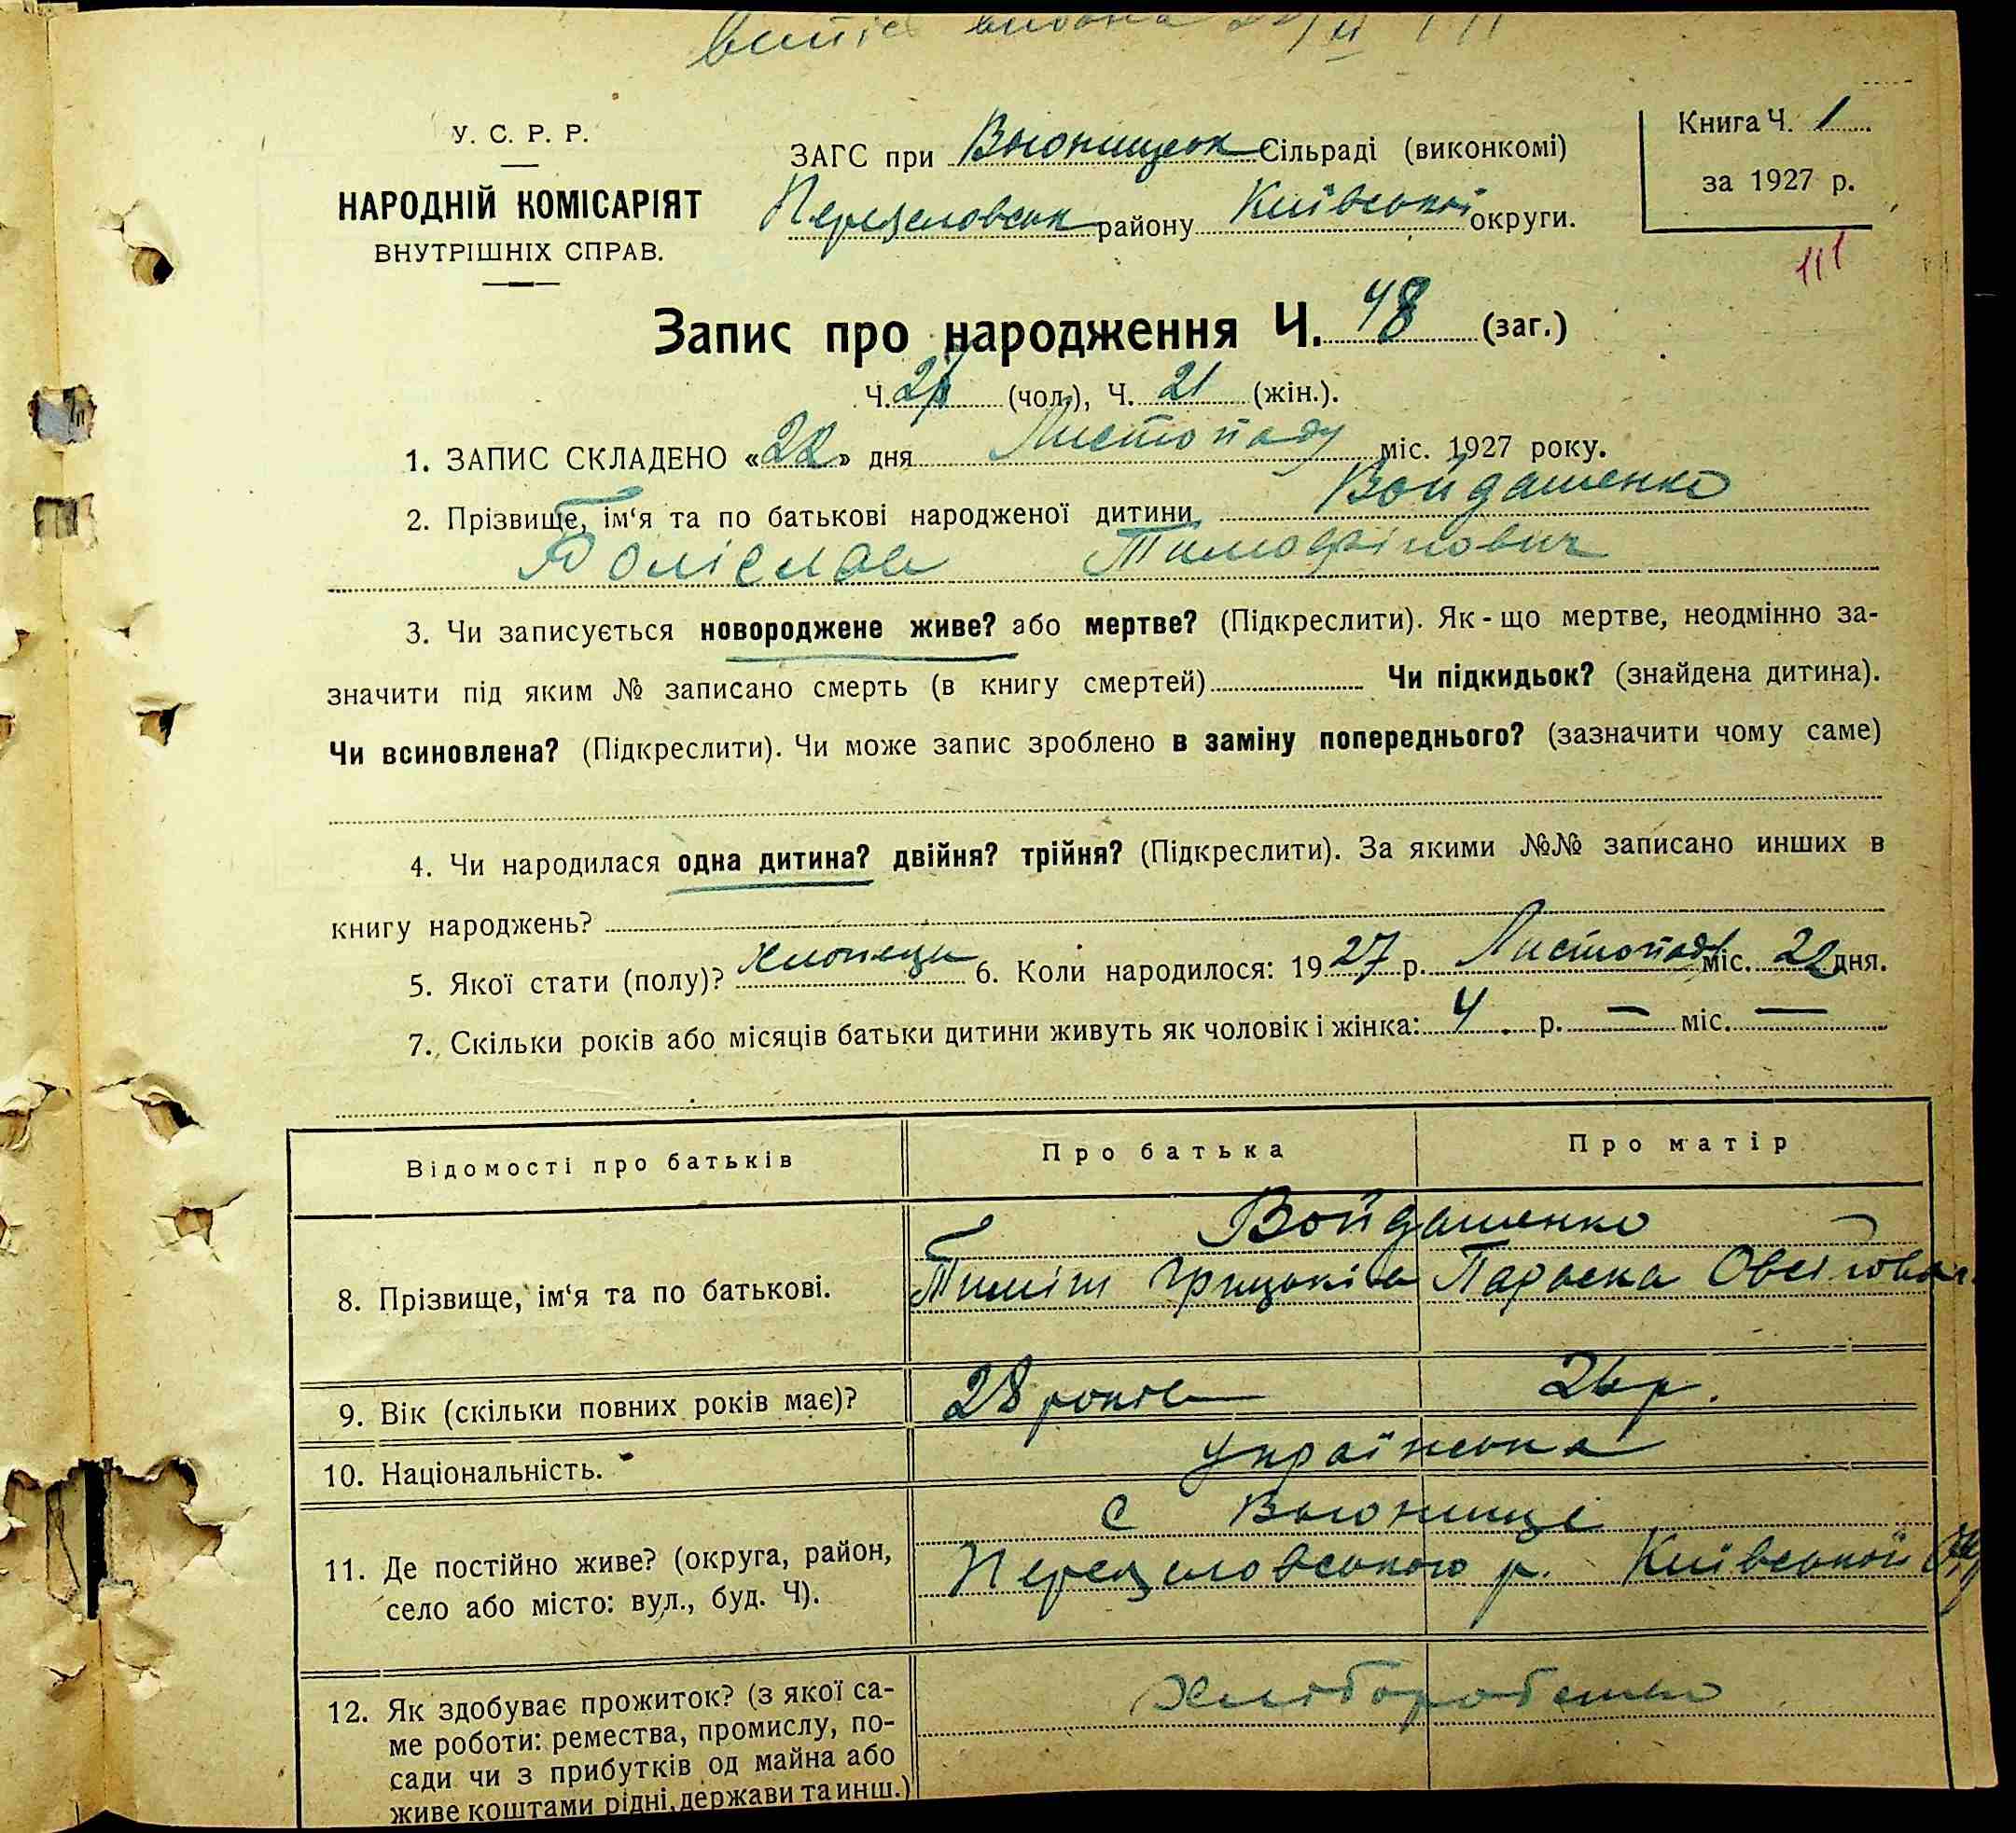 У. С. Р. Р.
НАРОДНІЙ КОМІСАРІЯТ
ВНУТРІШНІХ СПРАВ.
ЗАГС при Вьюнищськ Сільраді (виконкомі)
Переяславськ району Київської округи.
Книга Ч. 1
за 1927 р.
111
Запис про народження Ч. 48 (заг.)
Ч. 27 (чол.), Ч. 21 (жін.).
1. ЗАПИС СКЛАДЕНО «22» дня Листопаду міс. 1927 року.
2. Прізвище, ім‘я та по батькові народженої дитини Войдашенко
Болієлав Тимофійович
3. Чи записується новороджене живе? або мертве? (Підкреслити). Як-що мертве, неодмінно за-
значити під яким № записано смерть (в книгу смертей) Чи підкидьок? (знайдена дитина).
Чи всиновлена? (Підкреслити). Чи може запис зроблено в заміну попереднього? (зазначити чому саме)
4. Чи народилася одна дитина? двійня? трійня? (Підкреслити). За якими №№ записано инших в
книгу народжень?
5. Якої стати (полу)? хлопець 6. Коли народилося: 1927 р. Листопад міс. 22 дня.
7. Скільки років або місяців батьки дитини живуть як чоловік і жінка: 4 р. — міс. —
Відомості про батьків Про батька Про матір
8. Прізвище, ім‘я та по батькові.
Войдашенко
Тиміш Грицьків Параска Овсіївна
9. Вік (скільки повних років має)? 28 років 26 р.
10. Національність. Українська
11. Де постійно живе? (округа, район,
село або місто: вул., буд. Ч).
с Вьюнище
Переяславського р. Київської Окр
12. Як здобуває прожиток? (з якої са-
ме роботи: ремества, промислу, по-
сади чи з прибутків од майна або
живе коштами рідні, держави та инш.)
Хліборобство